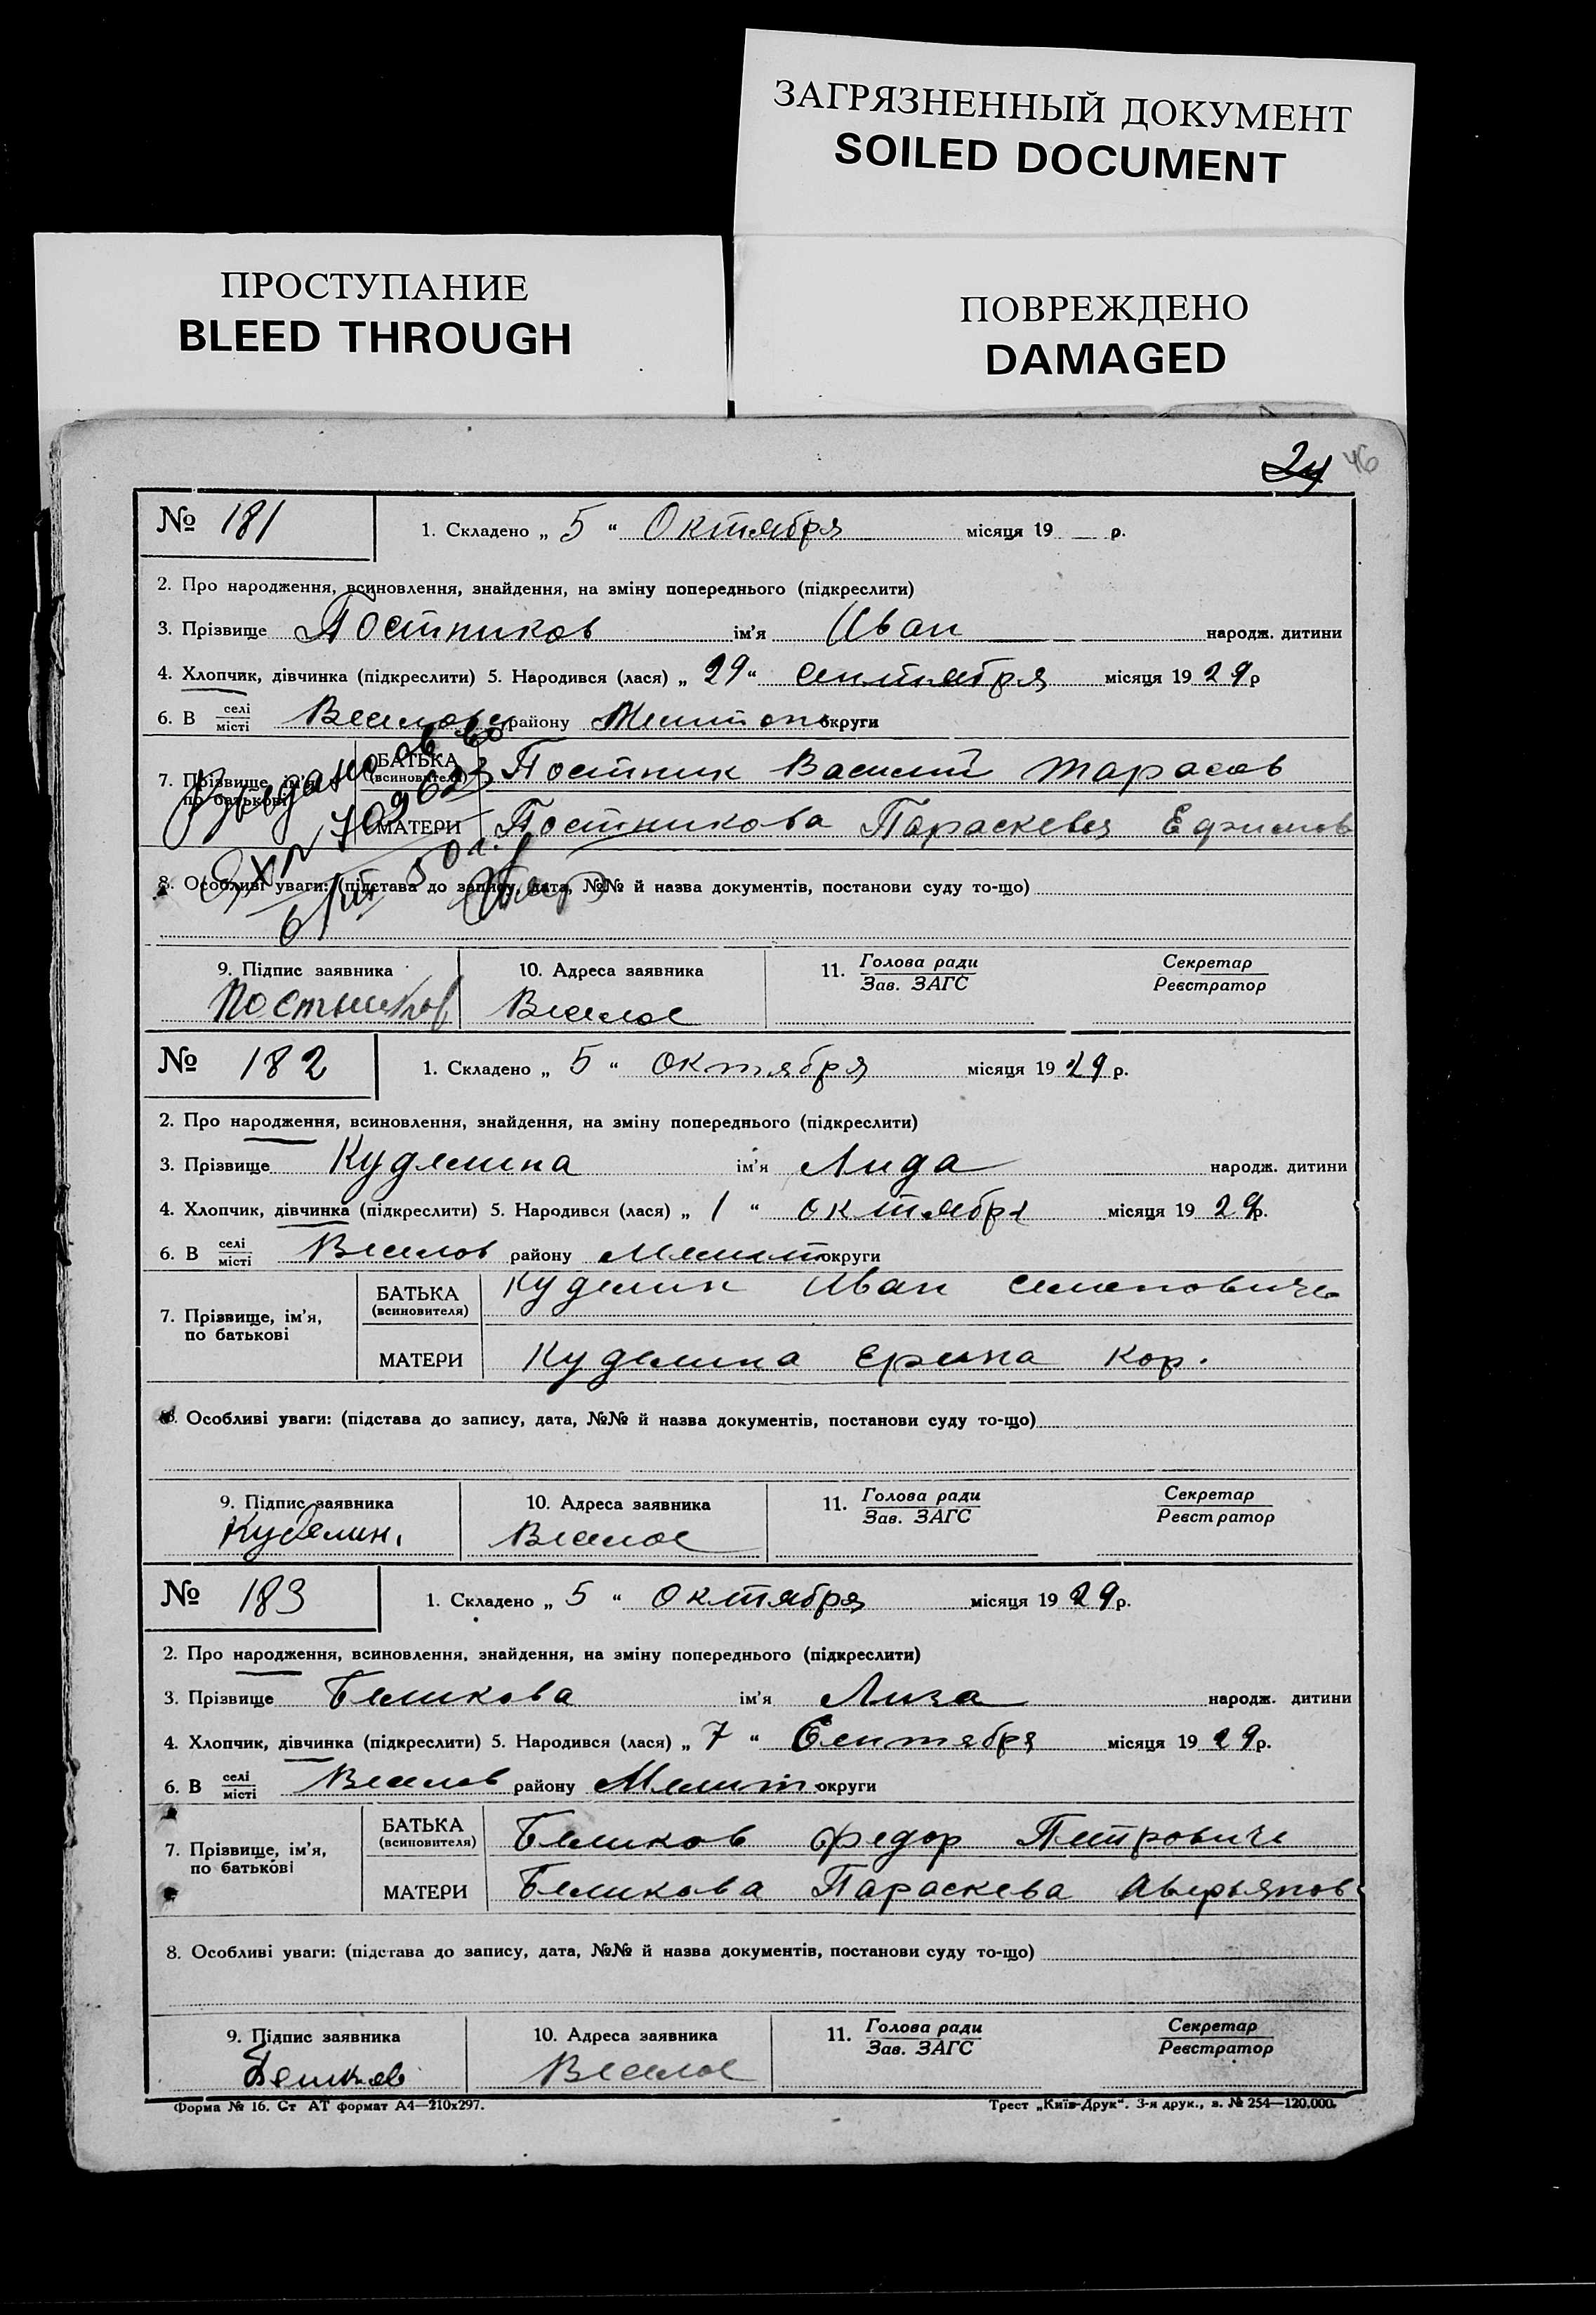 ЗАГРЯЗНЕННЫЙ ДОКУМЕНТ
SOILED DOCUMENT
ПРОСТУПАНИЕ
BLEED THROUGH
ПОВРЕЖДЕНО
DAMAGED
24 46
№ 181 1. Складено „ 5 “ Октября місяця 19 р.
2. Про народження, всиновлення, знайдення, на зміну попереднього (підкреслити)
3. Прізвище Постников ім'я Иван народж. дитини
4. Хлопчик, дівчинка (підкреслити) 5. Народився (лася) „ 29 “ сентября місяця 19 29 р
6. В селі місті Веселовс району Мелитоп округи
7. Прізвище, ім'я, по батькові БАТЬКА (всиновителя) Постник Василий Тарасов
МАТЕРИ Постникова Параскевья Ефимов
Выдано св во
8. Особливі уваги: (підстава до запису, дата, №№ й назва документів, постанови суду то-що)
9. Підпис заявника 10. Адреса заявника 11. Голова ради Зав. ЗАГС Секретар Реєстратор
Постников Веселое
№ 182 1. Складено „ 5 “ Октября місяця 19 29 р.
2. Про народження, всиновлення, знайдення, на зміну попереднього (підкреслити)
3. Прізвище Куделина ім'я Лида народж. дитини
4. Хлопчик, дівчинка (підкреслити) 5. Народився (лася) „ 1 “ октября місяця 19 29 р.
6. В селі місті Веселов району Мелит округи
7. Прізвище, ім'я, по батькові БАТЬКА (всиновителя) Куделин Иван Семенович
МАТЕРИ Куделина Ерина Кор.
8. Особливі уваги: (підстава до запису, дата, №№ й назва документів, постанови суду то-що)
9. Підпис заявника 10. Адреса заявника 11. Голова ради Зав. ЗАГС Секретар Реєстратор
Куделин. Веселое
№ 183 1. Складено „ 5 “ Октября місяця 19 29 р.
2. Про народження, всиновлення, знайдення, на зміну попереднього (підкреслити)
3. Прізвище Беликова ім'я Лиза народж. дитини
4. Хлопчик, дівчинка (підкреслити) 5. Народився (лася) „ 7 “ Сентября місяця 19 29 р.
6. В селі місті Веселов району Мелит округи
7. Прізвище, ім'я, по батькові БАТЬКА (всиновителя) Беликов Федор Петрович
МАТЕРИ Беликова Параскева Аверьянов
8. Особливі уваги: (підстава до запису, дата, №№ й назва документів, постанови суду то-що)
9. Підпис заявника 10. Адреса заявника 11. Голова ради Зав. ЗАГС Секретар Реєстратор
Беликов Веселое
Форма № 16. Ст АТ формат А4—210х297. Трест „Київ-Друк“. 3-я друк., з. № 254—120.000.